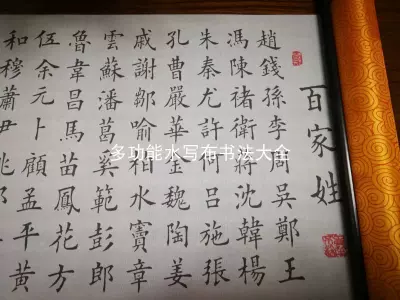 百家姓
趙錢孫李周吳鄭王
馮陳褚衛蔣沈韓楊
朱秦尤許何呂施張
孔曹嚴華金魏陶姜
戚謝鄒喻柏水竇章
雲蘇潘葛奚範彭郎
魯韋昌馬苗鳳花方
伍余元卜顧孟平黃
和穆蕭尹
多功能水写布书法大全